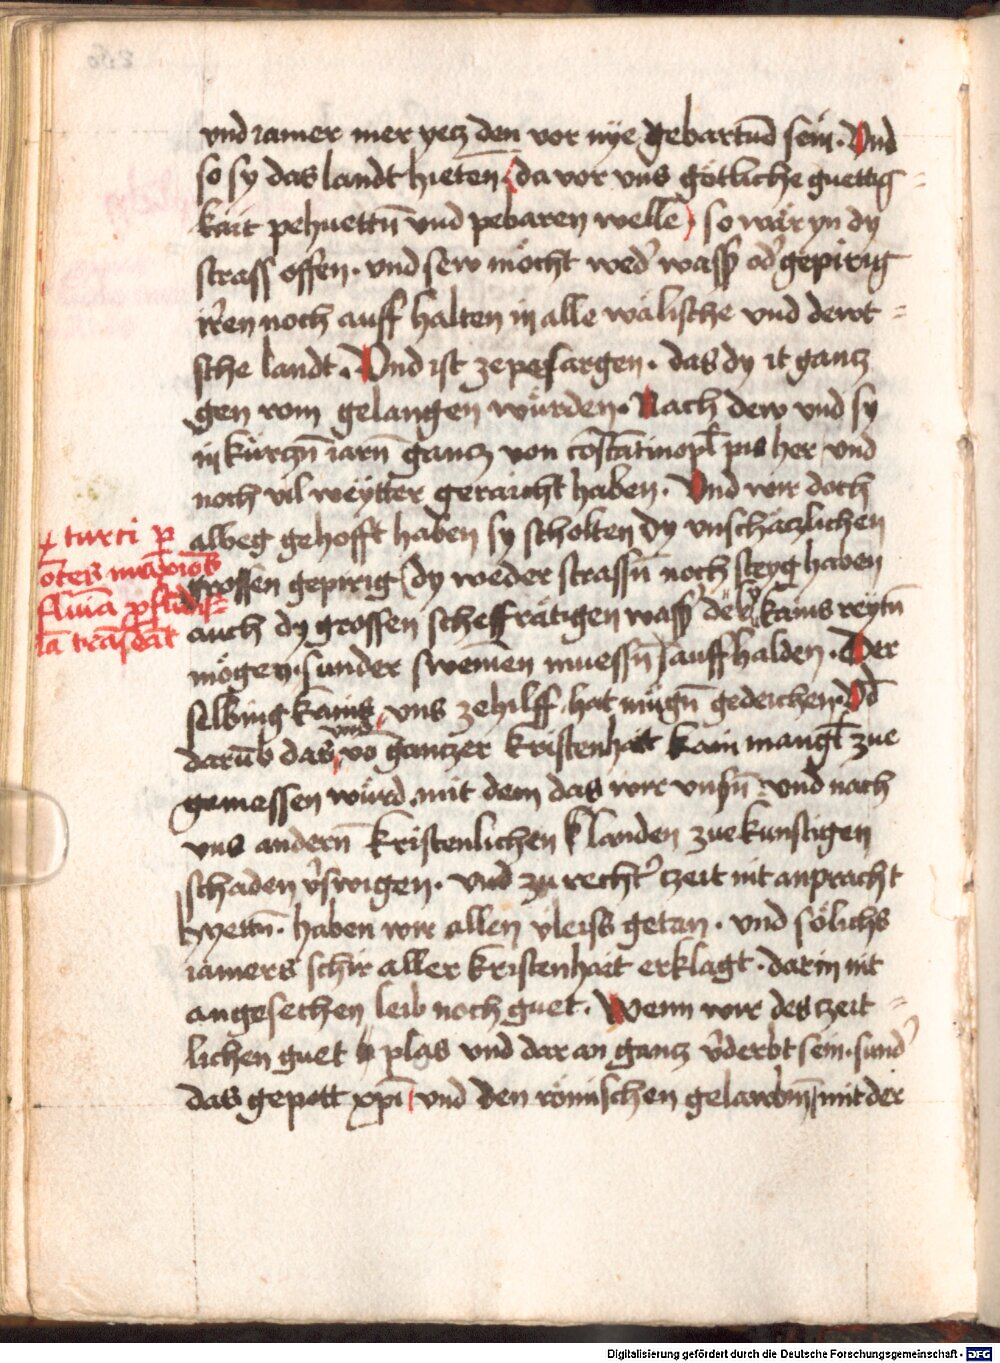 und iamer mer yecz den vor nye gebartn̄d sein. Und
so sy das landt hieten da vor uns götliche guettig=
kait pehuettn̄ und pebaren welle so wär yn dy
strass offen. und sew möcht wed' wass' od' gepirig
irren noch auff halten in alle wälische und dewt=
sche landt. Und ist ze pesargen. das dy it gancz
gen rom gelangen würden. Nach dew und sy
in kürczn̄ iarn̄ gancz von cōstātinopl pis her und
noch vil weytter geraicht haben. Und wir doch
albeg gehofft haben sy scholten dy unschäczlichen
grossen gepirig dy weder strassn̄ noch steyg haben
auch dy grossen scheffrätigen wass' der kains reytn̄
mögen. sunder swemen muessn̄ auff halden. Der
turci p
ōtes maxios
fluvia
trāseāt
selbing kains uns ze hilff hat mügn̄ gedeichen. Ud̄
darūb das und vō ganczer kristenhait kain mangl zue
gemessen würd. mit dem das wir unsn̄ und nach
uns andern̄ kristenlichen landen zuekunftigen
schaden v'swigen. und zu recht' zeit nit anpracht
hyettn̄. haben wir allen vleiss getan. und sölichs
iamers schir aller kristenhait erklagt. dar in nit
angesechen leib noch guet. Wenn wir des zeit=
lichen guet plas und dar an gancz v'derbt sein. sund'
das gepott xpī und den römischen gelawbm̄ mit der
Digitalisierung gefördert durch die Deutsche Forschungsgemeinschaft - DFG